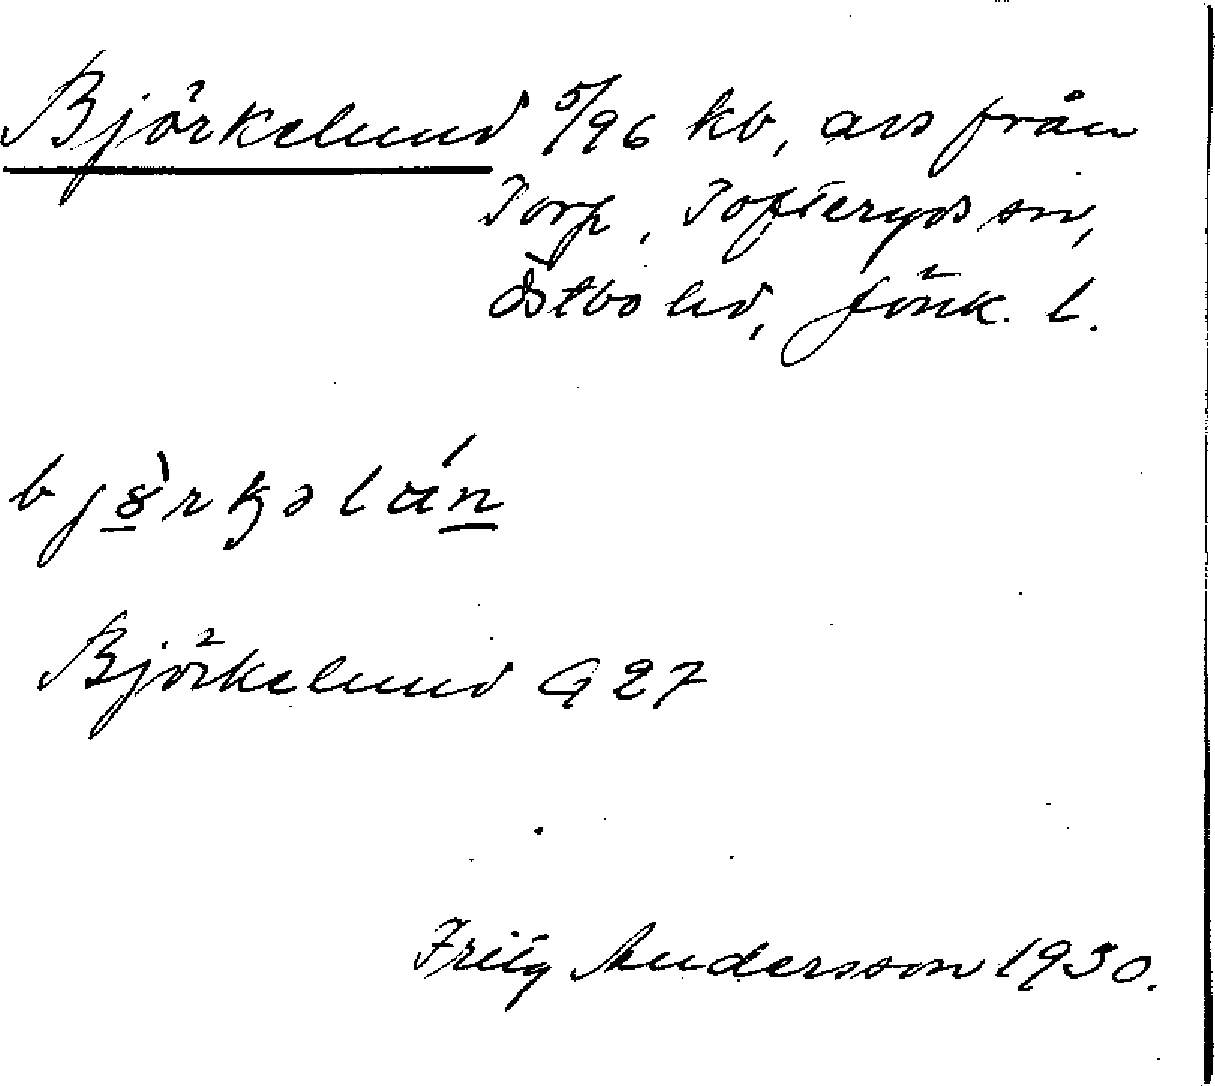 Björkelund 5/96 kb, avs från
Torp, Tofteryds sn,
Östbo hd, Jönk. l.
bjö̀rkəlún
Björkelund G 27
Fritz Andersson 1930.